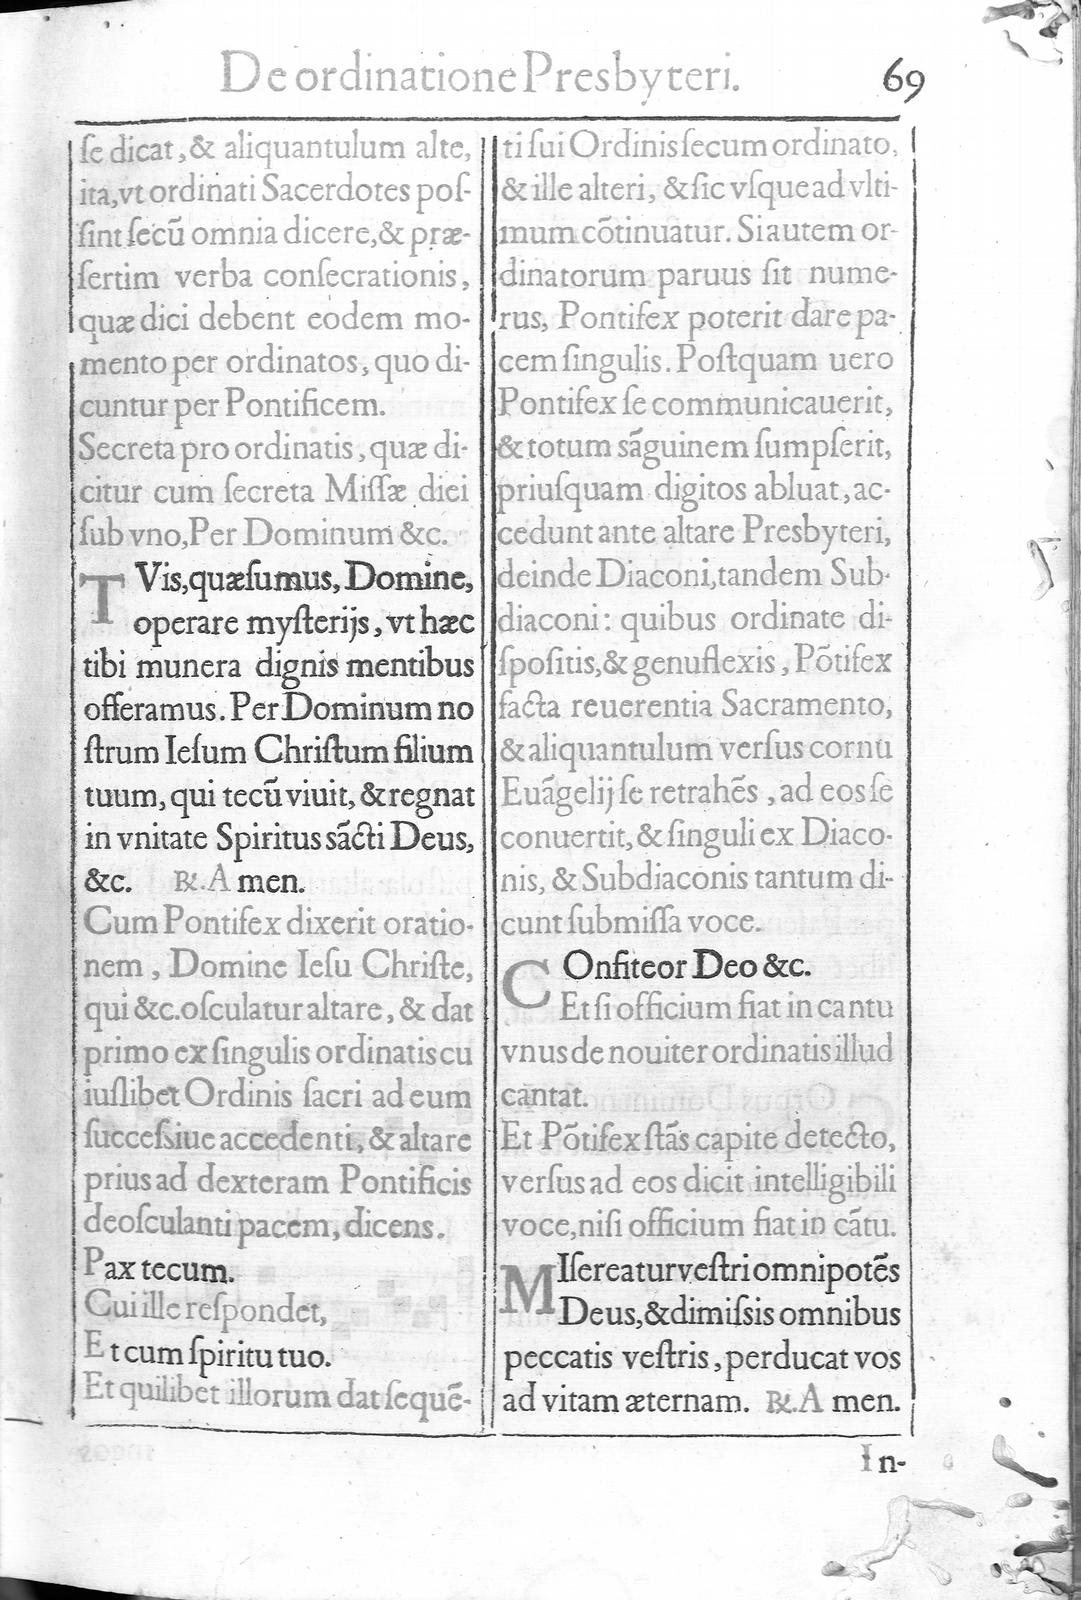 De ordinatione Presbyteri. 69
ſe dicat, & aliquantulum alte,
ita, vt ordinati Sacerdotes poſ-
ſint ſecū omnia dicere, & præ-
ſertim verba conſecrationis,
quæ dici debent eodem mo-
mento per ordinatos, quo di-
cuntur per Pontificem.
Secreta pro ordinatis, quæ di-
citur cum ſecreta Miſſæ diei
ſub vno, Per Dominum &c.
TVis, quæſumus, Domine,
operare myſterijs, vt hæc
tibi munera dignis mentibus
offeramus. Per Dominum no
ſtrum Ieſum Chriſtum filium
tuum, qui tecū viuit, & regnat
in vnitate Spiritus sācti Deus,
&c. ℟. Amen.
Cum Pontifex dixerit oratio-
nem, Domine Ieſu Chriſte,
qui &c. oſculatur altare, & dat
primo ex ſingulis ordinatis cu
iuſlibet Ordinis ſacri ad eum
ſucceſsiue accedenti, & altare
prius ad dexteram Pontificis
deoſculanti pacem, dicens.
Pax tecum.
Cui ille reſpondet,
Et cum ſpiritu tuo.
Et quilibet illorum dat ſequē-
ti ſui Ordinis ſecum ordinato,
& ille alteri, & ſic vſque ad vlti-
mum cōtinuatur. Si autem or-
dinatorum paruus ſit nume-
rus, Pontifex poterit dare pa-
cem ſingulis. Poſtquam uero
Pontifex ſe communicauerit,
& totum sāguinem ſumpſerit,
priuſquam digitos abluat, ac-
cedunt ante altare Presbyteri,
deinde Diaconi, tandem Sub-
diaconi: quibus ordinate di-
ſpoſitis, & genuflexis, Pōtifex
facta reuerentia Sacramento,
& aliquantulum verſus cornu
Euāgelij ſe retrahēs, ad eos ſe
conuertit, & ſinguli ex Diaco-
nis, & Subdiaconis tantum di-
cunt ſubmiſſa voce.
COnfiteor Deo &c.
Et ſi officium fiat in cantu
vnus de nouiter ordinatis illud
cantat.
Et Pōtifex ſtās capite detecto,
verſus ad eos dicit intelligibili
voce, niſi officium fiat in cātu.
MIſereatur veſtri omnipotēs
Deus, & dimiſsis omnibus
peccatis veſtris, perducat vos
ad vitam æternam. ℟. Amen.
In-